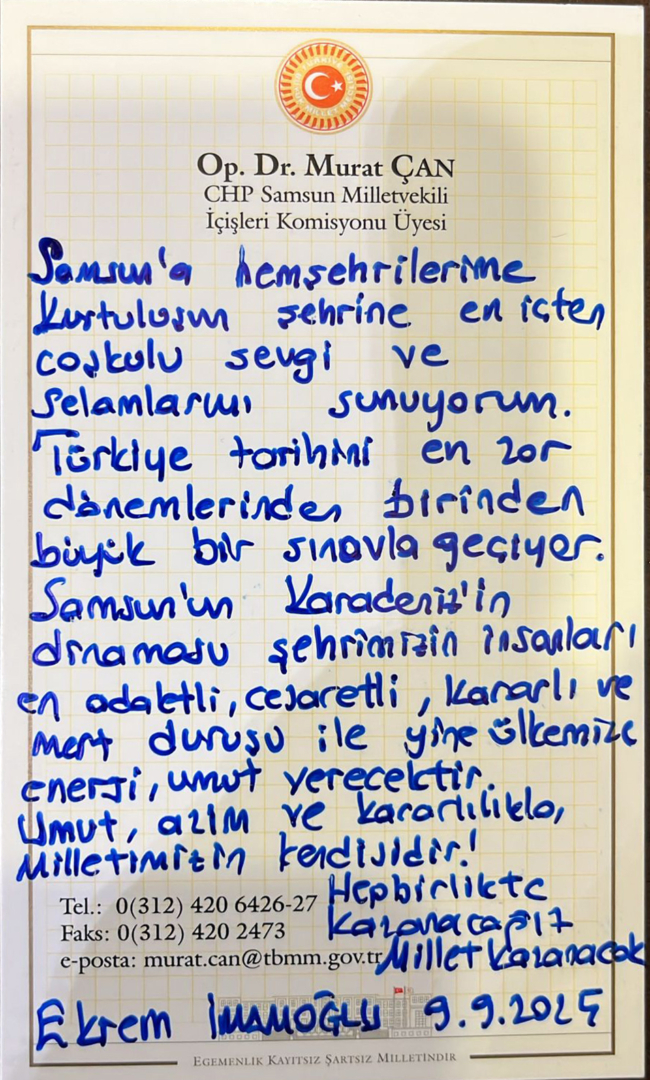 Op. Dr. Murat ÇAN
CHP Samsun Milletvekili
İçişleri Komisyonu Üyesi
Samsun'a hemşehrilerime
Kurtuluşun şehrine en içten
coşkulu sevgi ve
selamlarımı sunuyorum.
Türkiye tarihini en zor
dönemlerinden birinden
büyük bir sınavla geçiyor.
Samsun'un Karadeniz'in
dinamosu şehrimizin insanları
en adaletli, cesaretli, kararlı ve
mert duruşu ile yine ülkemize
enerji, umut verecektir.
Umut, azim ve kararlılıkla,
Milletimizin kendisidir!
Hepbirlikte
Tel.: 0(312) 420 6426-27
Kazanacağız
Faks: 0(312) 420 2473
Millet Kazanacak
e-posta: murat.can@tbmm.gov.tr
Ekrem İMAMOĞLU 9.9.2025
EGEMENLİK KAYITSIZ ŞARTSIZ MİLLETİNDİR